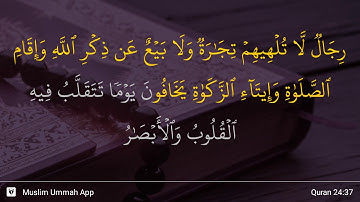 رِجَالٌ لَّا تُلْهِيهِمْ تِجَٰرَةٌ وَلَا بَيْعٌ عَن ذِكْرِ ٱللَّهِ وَإِقَامِ
ٱلصَّلَوٰةِ وَإِيتَآءِ ٱلزَّكَوٰةِ يَخَافُونَ يَوْمًا تَتَقَلَّبُ فِيهِ
ٱلْقُلُوبُ وَٱلْأَبْصَٰرُ
Muslim Ummah App
Quran 24:37